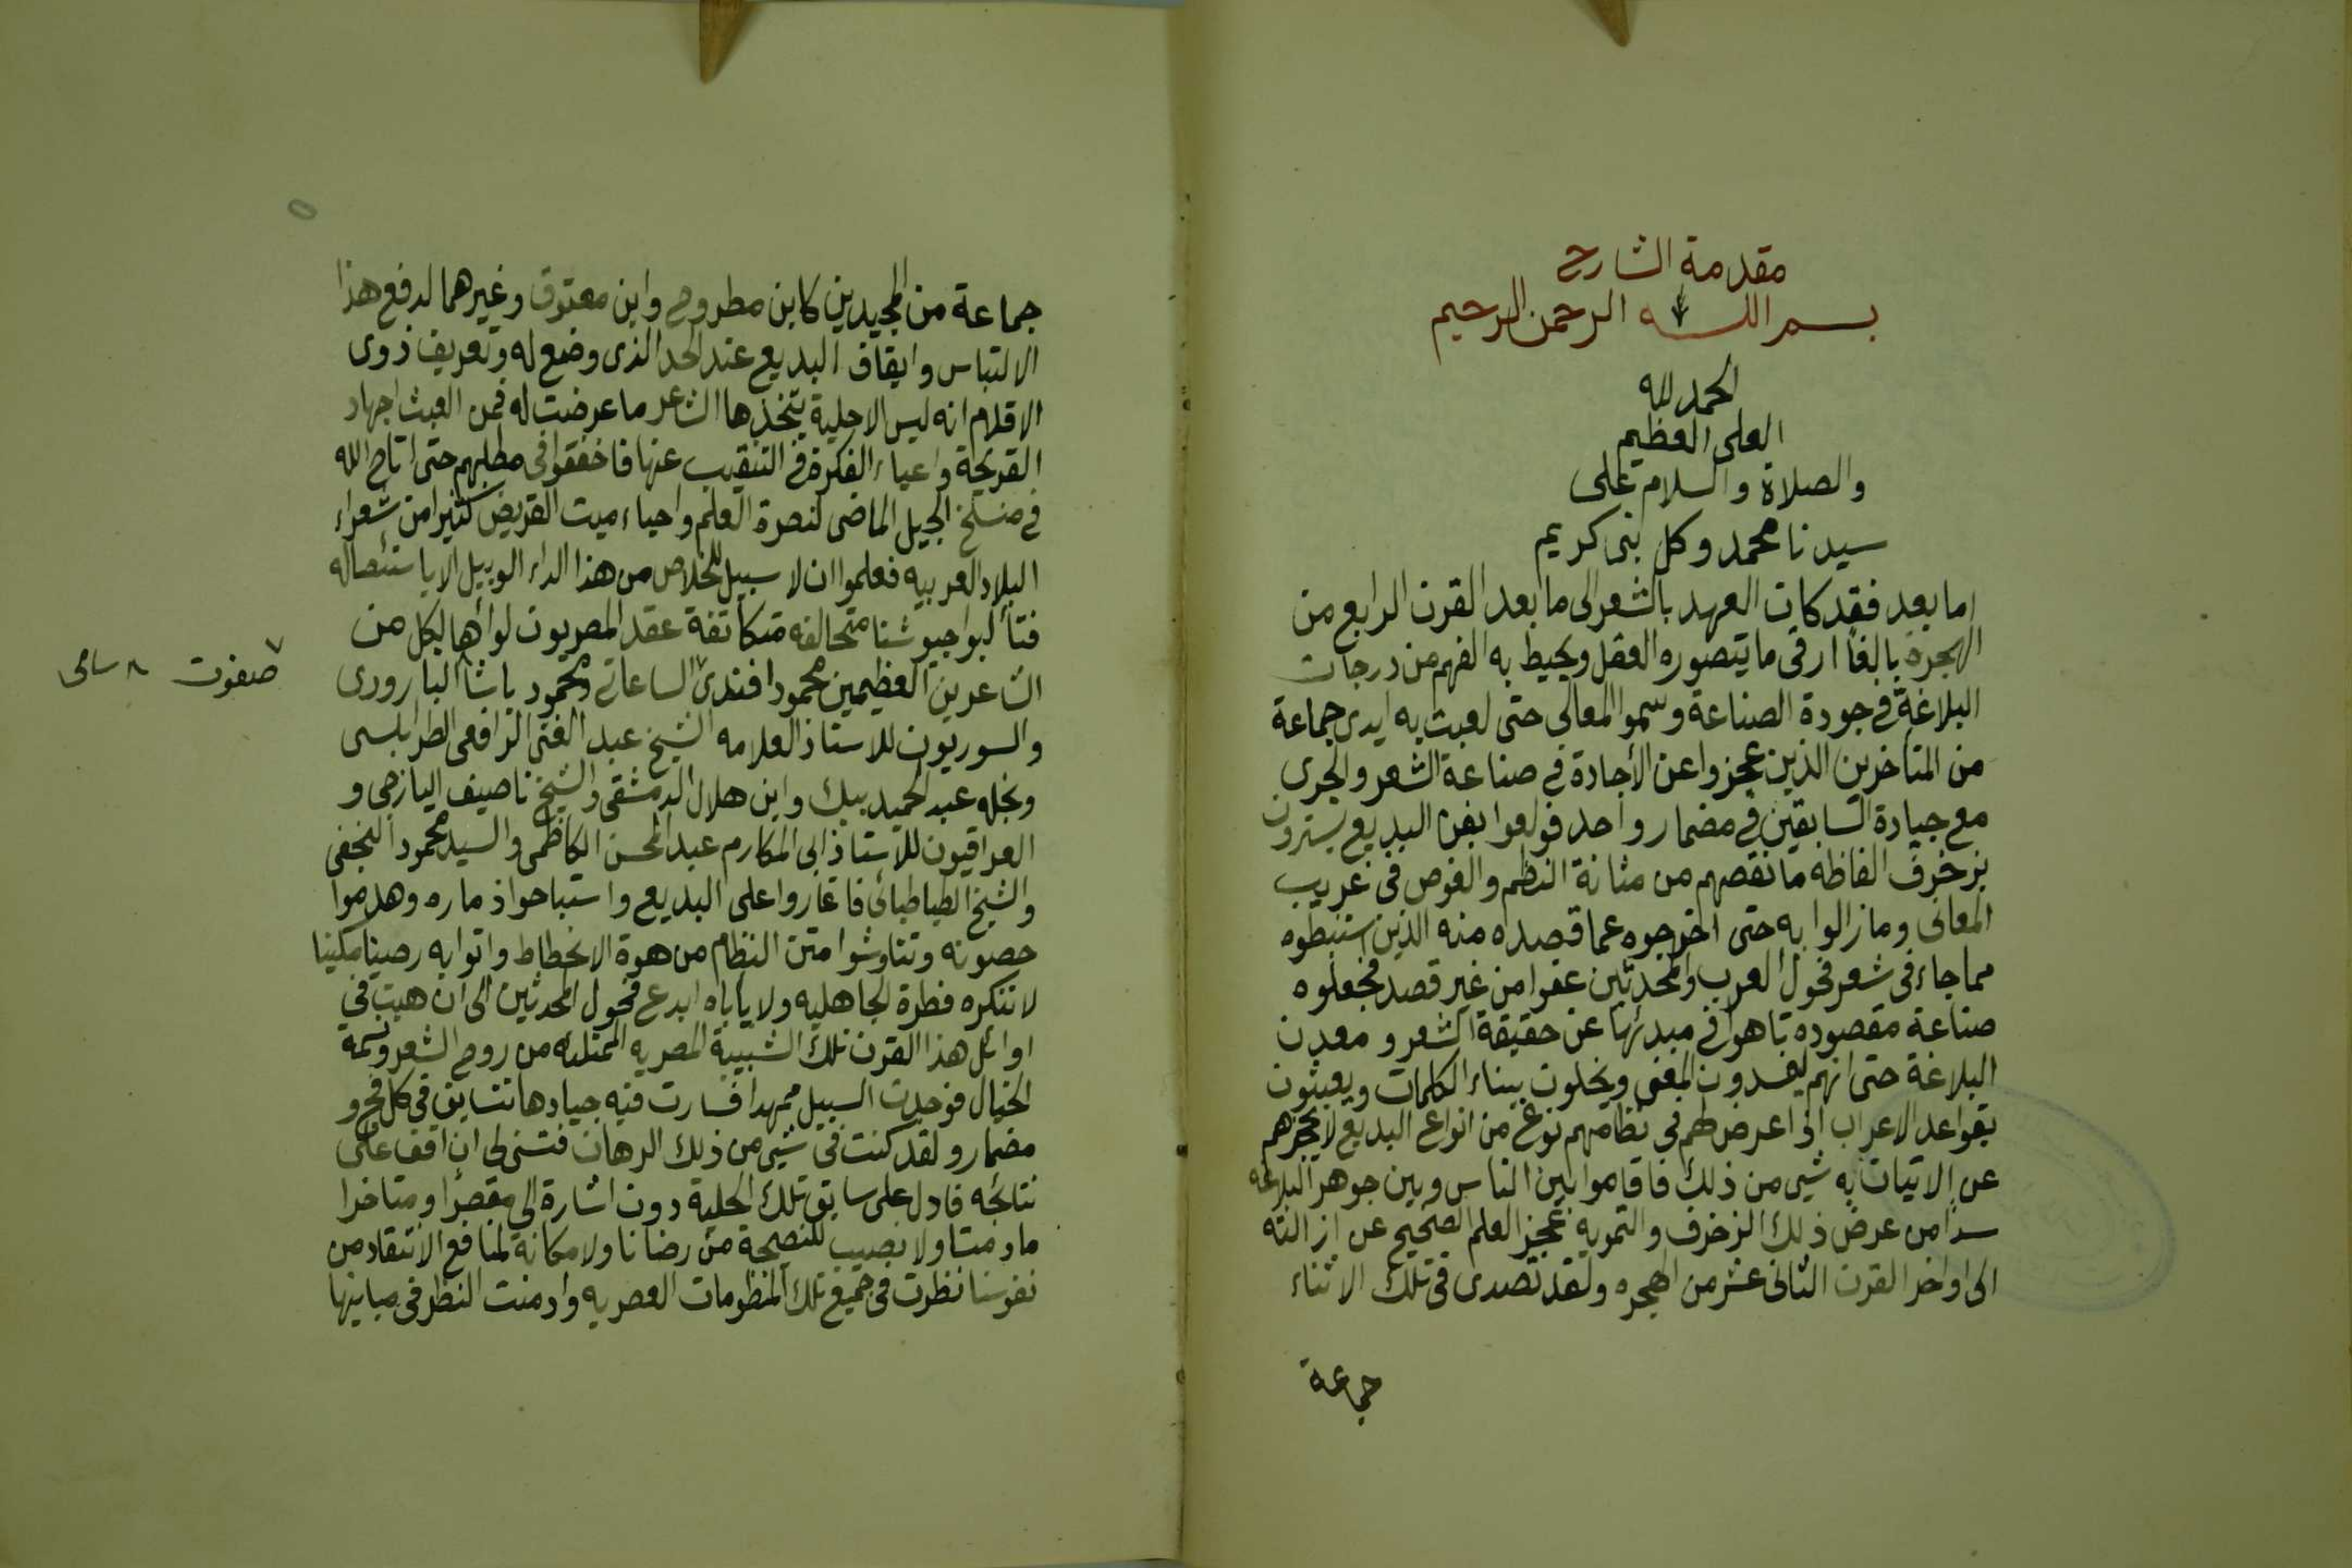 مقدمة الشارح
بسم الله الرحمن الرحيم
الحمد لله
العلى العظيم
والصلاة والسلام على
سيدنا محمد وكل نبى كريم
اما بعد فقد كان العهد بالشعر الى ما بعد القرن الرابع من
الهجرة بالغا ارقى ما يتصوره العقل ويحيط به الفهم من درجات
البلاغة فى جودة الصناعة وسمو المعالى حتى لعبت به ايدى جماعة
من المتأخرين الذين عجزوا عن الأجادة فى صناعة الشعر والجرى
مع جيادة السابقين فى مضمار واحد فولعوا بفن البديع يسترون
بزخرف الفاظه ما نقصهم من متانة النظم والغوص فى غريب
المعانى وما زالوا به حتى اخرجوه عما قصده منه الذين استنبطوه
مما جاء فى شعر فحول العرب والمحدثين عفوا من غير قصد فجعلوه
صناعة مقصوده تاهوا فى مبدئها عن حقيقة الشعر و معدن
البلاغة حتى انهم ليفسدون المعنى ويخلون ببناء الكلمات ويعبثون
بقواعد الاعراب اذا عرض لهم فى نظامهم نوع من انواع البديع لا يحجزهم
عن الاتيان به شيى من ذلك فاقاموا بين الناس وبين جوهر البلاغه
سدا من عرض ذلك الزخرف والتمويه عجز العلم الصحيح عن ازالته
الى اواخر القرن الثانى عشر من الهجره ولقد تصدى فى تلك الاثناء
جماعة
جماعة من المجيدين كابن مطروح وابن معتوق وغيرهما لدفع هذا
الالتباس وايقاف البديع عند الحد الذى وضع له وتعريف ذوى
الاقلام انه ليس الا حلية يتخذها الشاعر ما عرضت له فمن العبث اجهاد
القريحة واعياء الفكرة فى التنقيب عنها فاخفقوا فى مطلبهم حتى اتاح الله
فى منسلخ الجيل الماضى لنصرة العلم واحياء ميت القريض كثيرا من شعراء
البلاد العربيه فعلموا ان لا سبيل للخلاص من هذا الداء الوبيل الا باستئصاله
فتألبوا جيوشا متحالفه متكاتفة عقد المصريون لوائها لكل من
الشاعرين العظيمين محمود افندى ٧ الساعاتى ومحمود ٨ باشا البارودى
٧ صفوت ٨ سامى
والسوريون للاستاذ العلامه الشيخ عبد الغنى الرافعى الطرابلسى
ونجله عبد الحميد بيك وابن هلال الدمشقى والشيخ ناصيف اليازجى و
العراقيون للاستاذ ابى المكارم عبد المحسن الكاظمى والسيد محمود النجفى
والشيخ الطباطبائى فاغاروا على البديع واستباحوا ذماره وهدموا
حصونه وتناوشوا متن النظام من هوة الانحطاط واتوا به رصينا مكينا
لا تنكره فطرة الجاهليه ولا يأباه ابدع فحول المحدثين الى ان هبت فى
اوائل هذا القرن تلك الشبيبة المصريه الممتلئه من روح الشعر ونسمة
الخيال فوجدت السبيل ممهدا فسارت فيه جيادها تتسابق فى كل فج و
مضمار ولقد كنت فى شيى من ذلك الرهان فتسنى لى ان اقف على
نتائجه فادل على سابق تلك الحلبة دون اشارة الى مقصرا ومتاخرا
ما دمتا ولا نصيب للنصيحة من رضانا ولا مكانة لمنافع الانتقاد من
نفوسنا نظرت فى جميع تلك المنظومات العصريه وادمنت النظر فى مبانيها